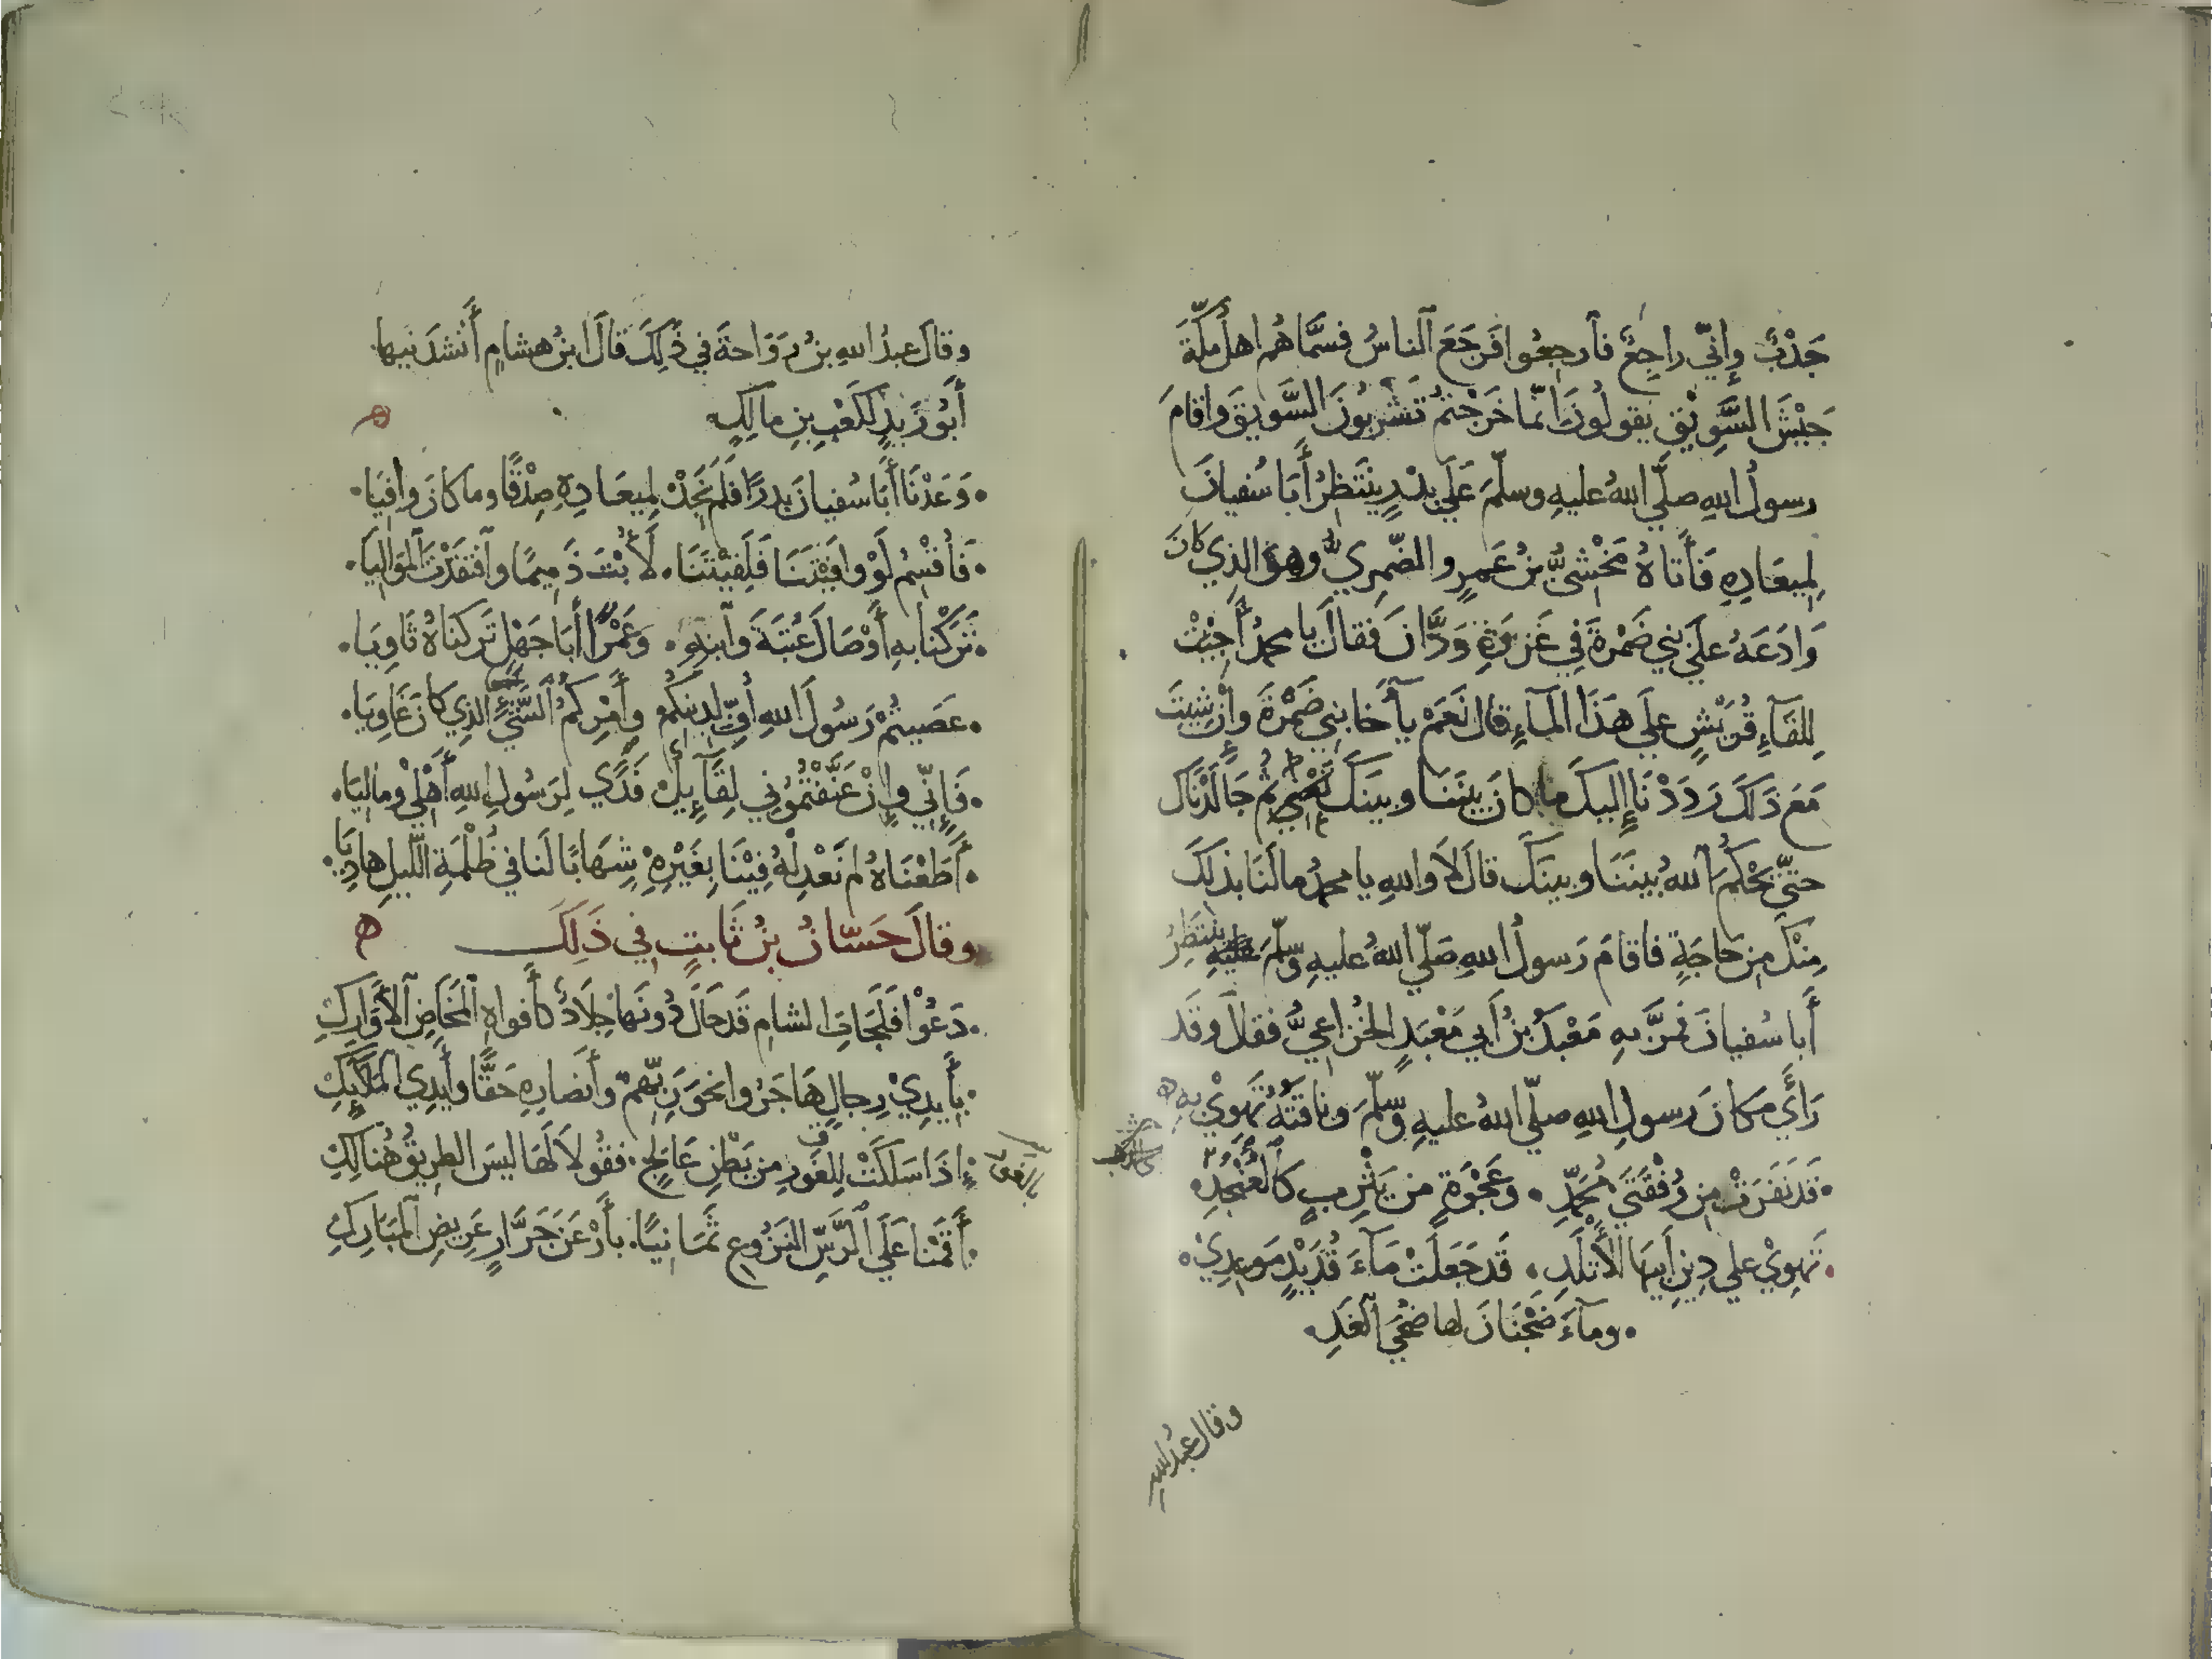 جَدْبٌ وإِنّي راجِعٌ فارجِعُوا فَرجَعَ الناسُ فسَمَّاهُم اهلُ مكّةَ
جَيْشَ السَّوِيْقِ يقولُونَ انّما خَرَجْتمْ تَشْرَبُونَ السَّويقَ واقامَ
رسولُ اللهِ صلّي اللهُ عليهِ وسلّمَ عَلَي بدْرٍ ينْتَظِرُ أَبَا سُفيانَ
لِمِيعَادِهِ فَأَتاهُ مَخْشِيُّ بنُ عَمرٍو الضّمرِيُّ وهوَ الذِي كانَ
وَادَعَهُ علَي بنِي ضَمْرةَ فِي غَزوَةِ وَدَّانَ فَقالَ يا محمدُ أَجِئْتَ
لِلقَآءِ قُرَيْشٍ علي هَذَا المآءِ قالَ نَعَمْ يآ أَخا بنِي ضَمْرةَ وإِنْ شِيتَ
مَعَ ذَلكَ رَدَدْنَا إِليكَ ما كانَ بينَنَا وبينَكَ ثم جَالَدْنَاكَ
حتّي يَحْكُمَ اللهُ بينَنَا وبينَكَ قالَ لاَ واللهِ يا محمدُ ما لَنَا بذلكَ
مِنْكَ مِن حاجَةٍ فاقامَ رَسولُ اللهِ صَلّي اللهُ عليهِ وسلّمَ ينتَظِرُ
أَبا سُفيانَ فمرَّ بهِ مَعْبَدُ بنُ أَبي مَعْبَدٍ الخُزاعِيُّ فقالَ وقَد
رَأَي مَكانَ رسولِ اللهِ صلّي اللهُ عليهِ وسلّمَ وناقتُهُ تَهوِيْ بهِ ه
• قَد نَفَرَتْ مِن رُفْقَتَي مُحمَّدِ • وعَجْوَةٍ مِن يَثْرِبٍ كَالعُنْجُدِ •
• تَهوِيْ علي دِينِ أَبيهَا الأَتْلَدِ • قَد جَعَلَتْ مَآءَ قُدَيْدٍ مَوعِدِيْ •
• ومآءَ ضَجْنَانَ لها ضُحَي الغَدِ •
وقال عبد الله
وقالَ عبدُ اللهِ بنُ رَوَاحةَ في ذَلِكَ قالَ ابنُ هشامٍ أَنشدَنيها
أَبُو زَيدٍ لكَعْبِ بنِ مالِكٍ ه
• وَعَدْنَا أَبَا سُفيانَ بدرًا فلَم نَجِدْ لِمِيعَادِهِ صِدْقًا وما كانَ وافِيَا •
• فَأُقسِمُ لَوْ وافَيْتَنَا فَلَقِيْتَنَا • لَأُبْتَ ذَمِيمًا وافتقَدْتَ المَوَاليَا •
• تَرَكنَا بهِ أَوْصَالَ عُتبَةَ وَابنِهِ • وَعَمْرًا أَبَا جَهْلٍ تَركنَاهُ ثَاوِيَا •
• عَصَيتُمْ رَسُولَ اللهِ أُفٍّ لِدِينِكُم وأَمْرِكُمُ السَّيّءِ الذِي كانَ غَاوِيَا •
• فَإِنّي وإِنْ عَنَّفْتُمُوني لقَآئِلٌ فَدًي لِرَسُولِ اللهِ أَهْلِيْ ومَالِيَا •
• أَطَعْنَاهُ لم نَعْدِلْهُ فِيْنَا بِغَيْرِهِ شِهَابًا لنَا في ظُلْمَةِ اللّيلِ هادِيَا •
وقالَ حَسّانُ بنُ ثَابتٍ فِي ذَلِكَ ه
• دَعُوْا فَلَجَاتِ الشامِ قَد حَالَ دُونَها جِلَادٌ كأَفواهِ المَخَاضِ الأَوَارِكِ
• بأَيدِيْ رِجالٍ هَاجَرُوا نحوَ رَبّهمْ وأَنصَارِهِ حَقًّا وأَيدِي المَلآئِكِ
• إِذَا سَلَكَتْ لِلغَورِ مِن بَطْنِ عَالِجٍ • فقُولاَ لَهَا ليسَ الطرِيقُ هُنَالِكِ
• أَقَمْنَا عَلَي الرَّسِّ النَزُوعِ ثَمَانِيًا • بأَرْعَنَ جَرَّارٍ عَرِيضِ المَبَارِكِ